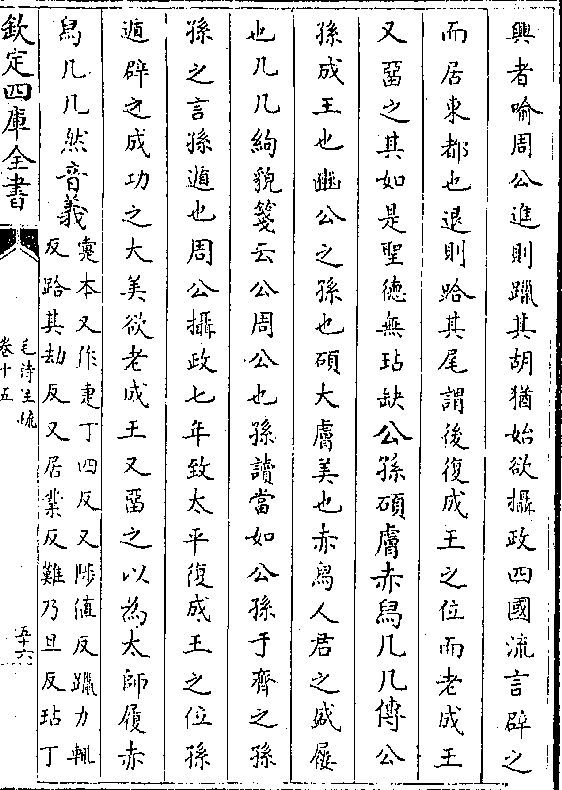 興者喻周公進則躐其胡猶始欲攝政四國流言辟之
而居東都也退則跲其尾謂後復成王之位而老成王
又畱之其如是聖德無玷缺公孫碩膚赤舄几几傳公
孫成王也豳公之孫也碩大膚美也赤舄人君之盛屨
也几几絇貌箋云公周公也孫讀當如公孫于齊之孫
孫之言孫遁也周公攝政七年致太平復成王之位孫
遁辟之成功之大美欲老成王又畱之以為太師履赤
舄几几然音義
疐本又作疌丁四反又陟值反躐力輒
反跲其劫反又居業反難乃旦反玷丁
欽定四庫全書
毛詩注疏
卷十五
五十六